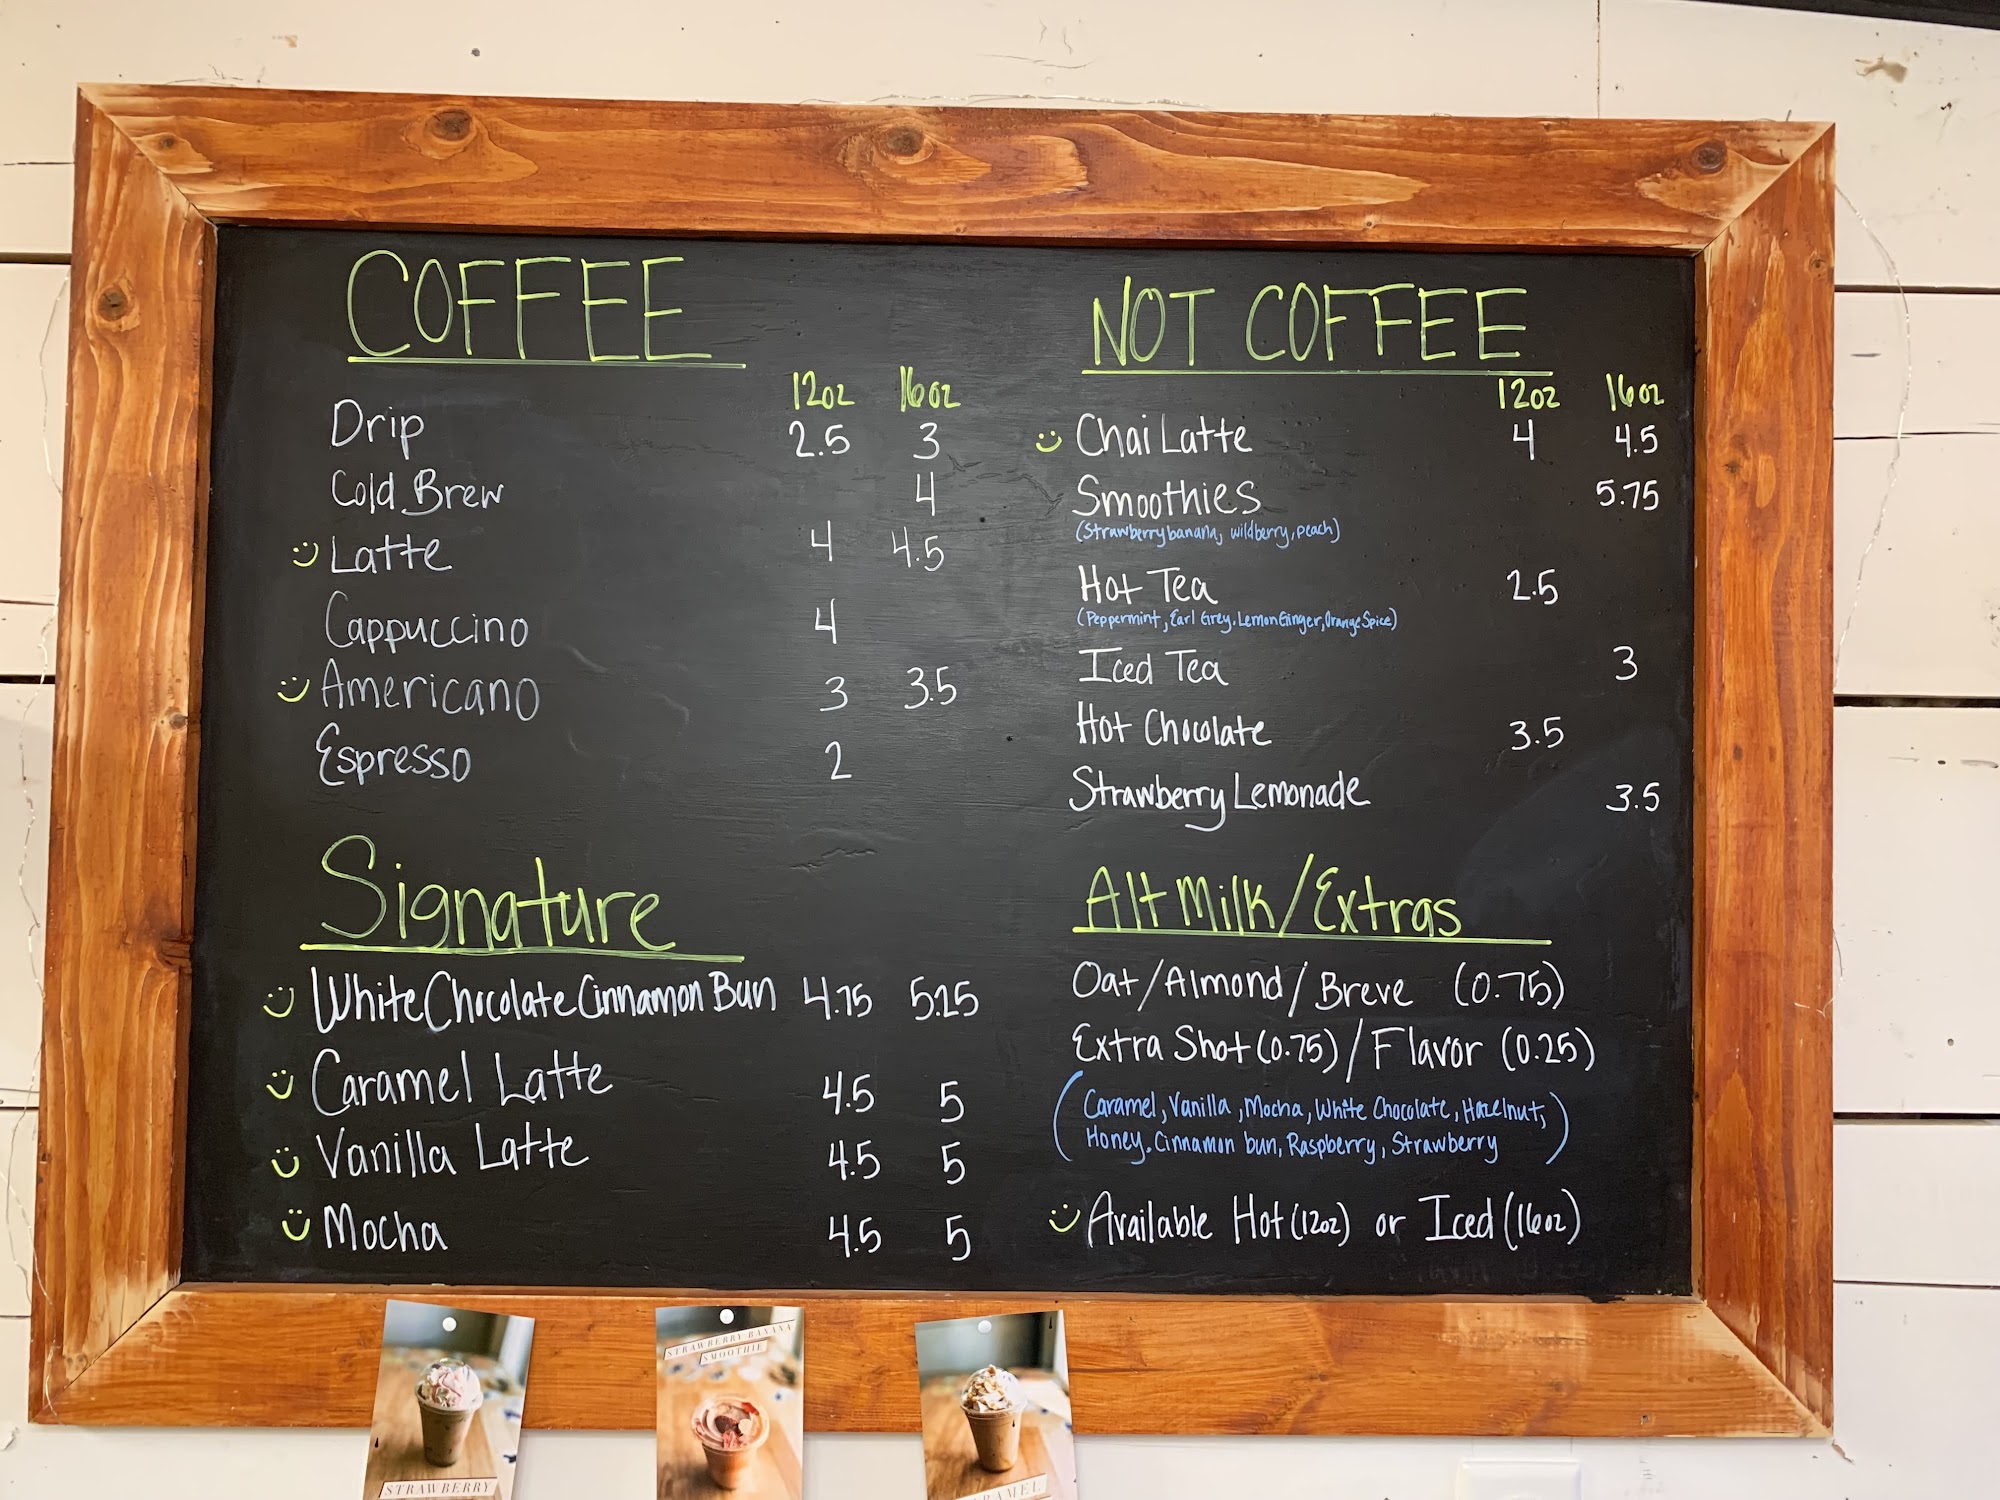 COFFEE
12oz 16oz
Drip 2.5 3
Cold Brew 4
Latte 4 4.5
Cappuccino 4
Americano 3 3.5
Espresso 2
Signature
White Chocolate Cinnamon Bun 4.75 5.25
Caramel Latte 4.5 5
Vanilla Latte 4.5 5
Mocha 4.5 5
NOT COFFEE
12oz 16oz
Chai Latte 4 4.5
Smoothies 5.75
(Strawberry banana, wildberry, peach)
Hot Tea 2.5
(Peppermint, Earl Grey, Lemon Ginger, Orange Spice)
Iced Tea 3
Hot Chocolate 3.5
Strawberry Lemonade 3.5
Alt Milk/Extras
Oat/Almond/Breve (0.75)
Extra Shot (0.75)/Flavor (0.25)
(Caramel, Vanilla, Mocha, White Chocolate, Hazelnut,
Honey, Cinnamon bun, Raspberry, Strawberry)
Available Hot (12oz) or Iced (16oz)
STRAWBERRY
STRAWBERRY BANANA
SMOOTHIE